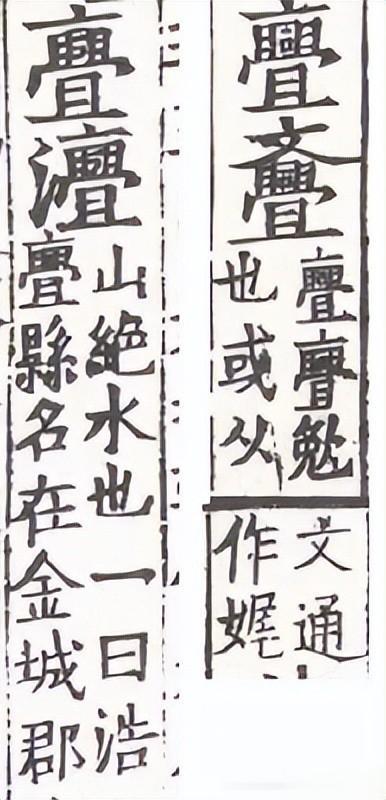 亹斖
亹亹勉
也或从
文通
作娓
亹
山絶水也一曰浩
亹縣名在金城郡